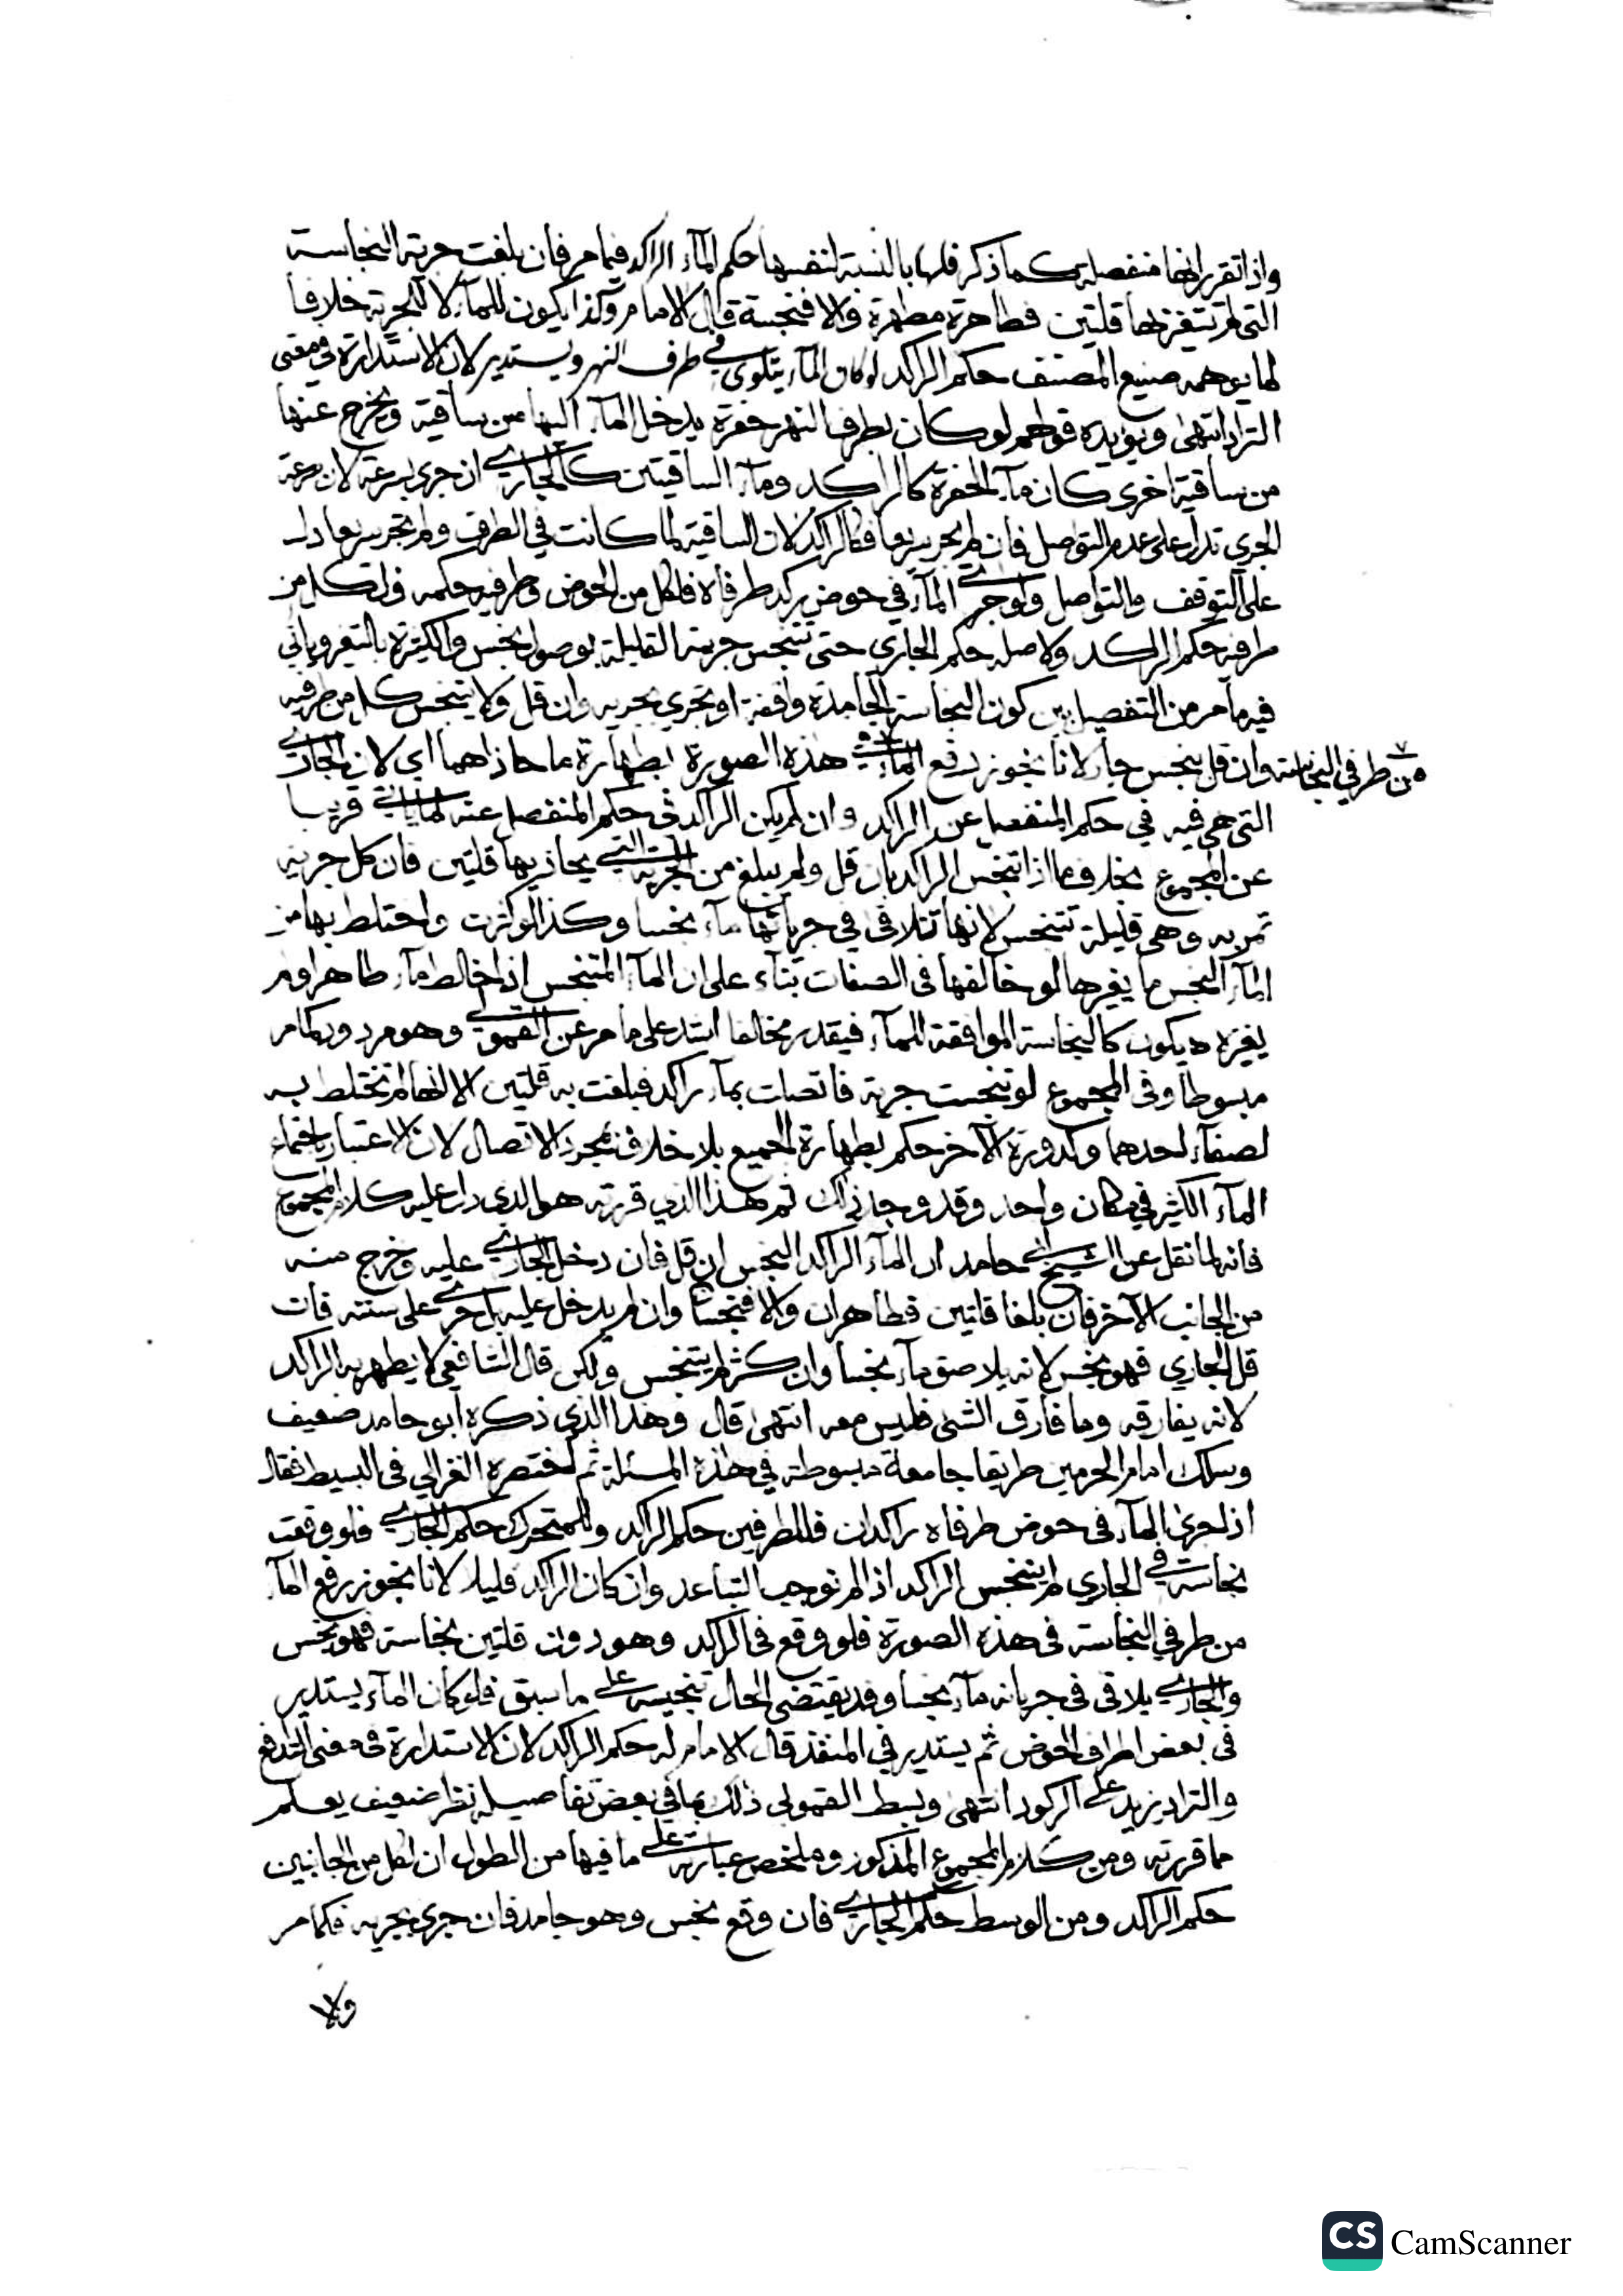 واذا تقرر انها منفصلة كما ذكر فلها بالنسبة لنفسها حكم المآء الراكد فيما مر فان بلغت جرية النجاسة
التى لم تتغير بها قلتين فطاهرة مطهرة والا فنجسة قال الامام وكذا يكون للمآء لا للجرية خلافا
لما يوهمه صنيع المصنف حكم الراكد لو كان المآء يتلوى في طرف النهر ويستدير لان الاستدارة في معنى
التراد انتهى ويؤيده قولهم لو كان بطرف النهر حفرة يدخل المآء اليها من ساقية ويخرج عنها
من ساقية اخرى كان مآء الحفرة كالراكد ومآء الساقيتين كالجاري ان جرى بسرعة لان سرعة
الجري تدل على عدم التواصل فان لم يجر سريعا فكالراكد لان الساقية لما كانت في الطرف ولم تجر سريعا دل
على التوقف والتواصل ولو جرى المآء في حوض يركد طرفاه فلكل من الحوض وطرفيه حكمه فلكل من
طرفيه حكم الراكد ولاصله حكم الجاري حتى تتنجس جريته القليلة بوصول نجس والكثيرة بالتغير وياتي
فيه ما مر من التفصيل بين كون النجاسة الجامدة واقفة او تجري بجريه وان قل ولا يتنجس كل من طرفيه
من طرفي النجاسة
وان قل بنجس جار لانا نجوز رفع المآء في هذه الصورة بطهارة ما حاذاهما اي لان الجاري
التى هي فيه في حكم المنفصل عن الراكد وان لم يكن الراكد في حكم المنفصل عنه لما ياتي قريبا
عن المجموع بخلاف ما اذا تنجس الراكد بان قل ولم يبلغ من الجرية التي يحاذيها قلتين فان كل جرية
تمر به وهي قليلة تتنجس لانها تتلاقى في جريانها مآء نجسا وكذا لو كثرت واختلط بها من
المآء النجس ما يغيرها لو خالفها في الصفات بنآء على ان المآء المتنجس اذا خالط مآء طاهرا ولم
يغيره يكون كالنجاسة الموافقة للمآء فيقدر مخالفا اشد على ما مر عن القمولي وهو مردود كما مر
مبسوطا وفى المجموع لو تنجست جرية فاتصلت بمآء راكد فبلغت به قلتين الا انها لم تختلط به
لصفآء احدهما وكدورة الآخر حكم بطهارة الجميع بلا خلاف بمجرد الاتصال لان الاعتبار باجتماع
المآء الكثير في مكان واحد وقد وجد ذلك ثم هذا الذي قررته هو الذي دل عليه كلام المجموع
فانه لما نقل عن الشيخ ابي حامد ان المآء الراكد النجس ان قل فان دخل الجاري عليه وخرج منه
من الجانب الآخر فان بلغا قلتين فطاهران والا فنجسا وان لم يدخل عليه بل جرى على سننه فان
قل الجاري فهو نجس لانه يلاصق مآء نجسا وان كثر لم يتنجس ولكن قال الشافعي لا يطهر به الراكد
لانه يفارقه وما فارق الشئ فليس معه انتهى قال وهذا الذي ذكره ابو حامد ضعيف
وسلك امام الحرمين طريقا جامعة مبسوطة في هذه المسئلة ثم اختصره الغزالي في البسيط فقال
اذا جرى المآء فى حوض طرفاه راكدان فللطرفين حكم الراكد وللمتحرك حكم الجاري فلو وقعت
نجاسة في الجاري لم يتنجس الراكد اذا لم نوجب التباعد وان كان الراكد قليلا لانا نجوز رفع المآء
من طرفي النجاسة فى هذه الصورة فلو وقع فى الراكد وهو دون قلتين نجاسة فهو نجس
والجاري يلاقى فى جريانه مآء نجسا وقد يقتضى الحال تنجيسه على ما سبق فلو كان المآء يستدير
فى بعض اطراف الحوض ثم يستدير في المنفذ قال الامام له حكم الراكد لان الاستدارة فى معنى التدافع
والتراد يزيد على الركود انتهى وبسط القمولي ذلك بما في بعض تفاصيله نظر ضعيف يعلم
مما قررته ومن كلام المجموع المذكور وملخص عبارته على ما فيها من الطول ان لكل من الجانبين
حكم الراكد ومن الوسط حكم الجاري فان وقع نجس وهو جامد فان جرى بجريه فكما مر
والا
CS CamScanner